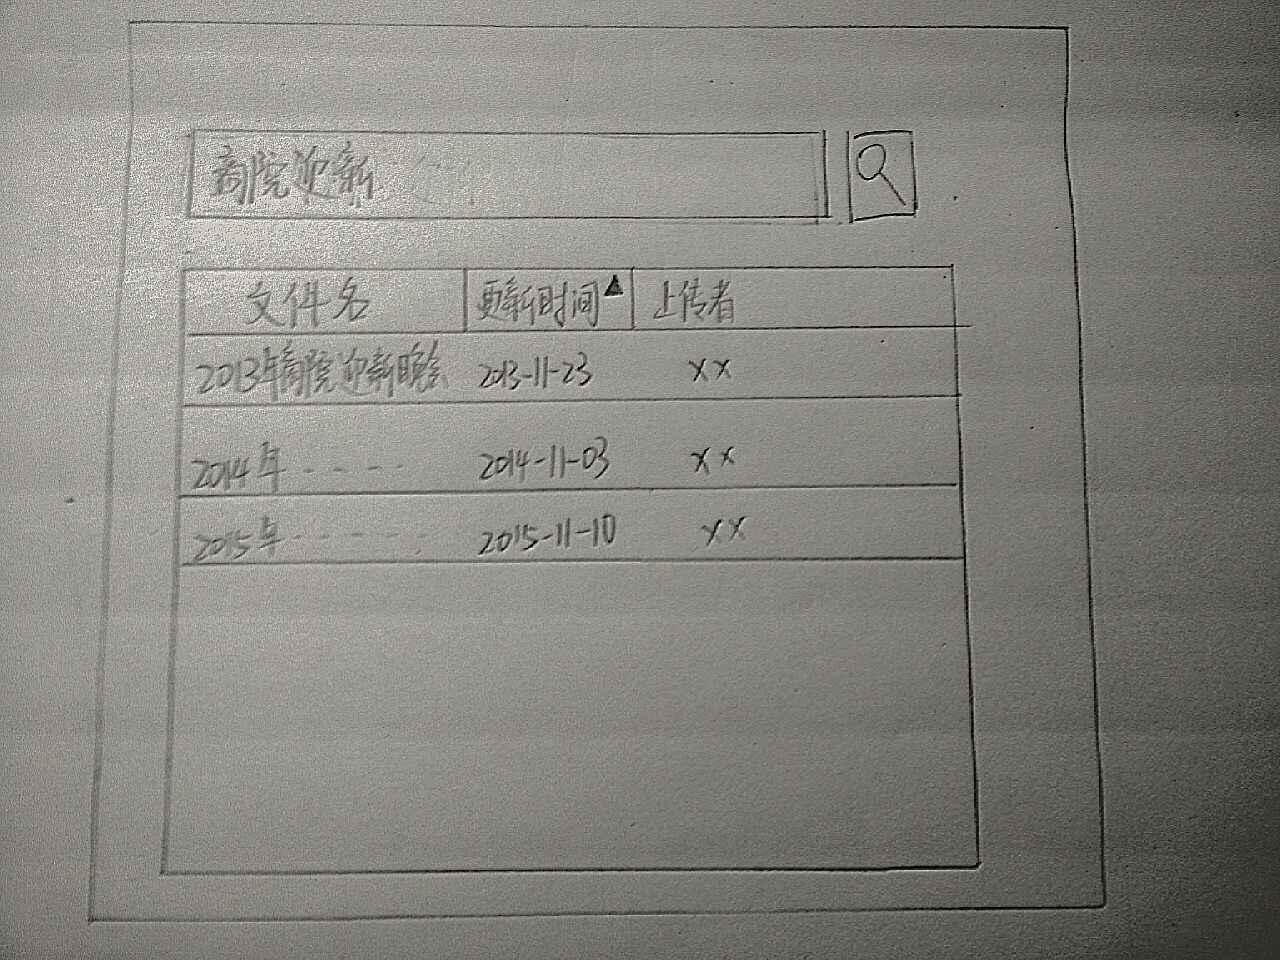 商院迎新
文件名 更新时间▲ 上传者
2013年商院迎新晚会 2013-11-23 ××
2014年----- 2014-11-03 ××
2015年------ 2015-11-10 ××